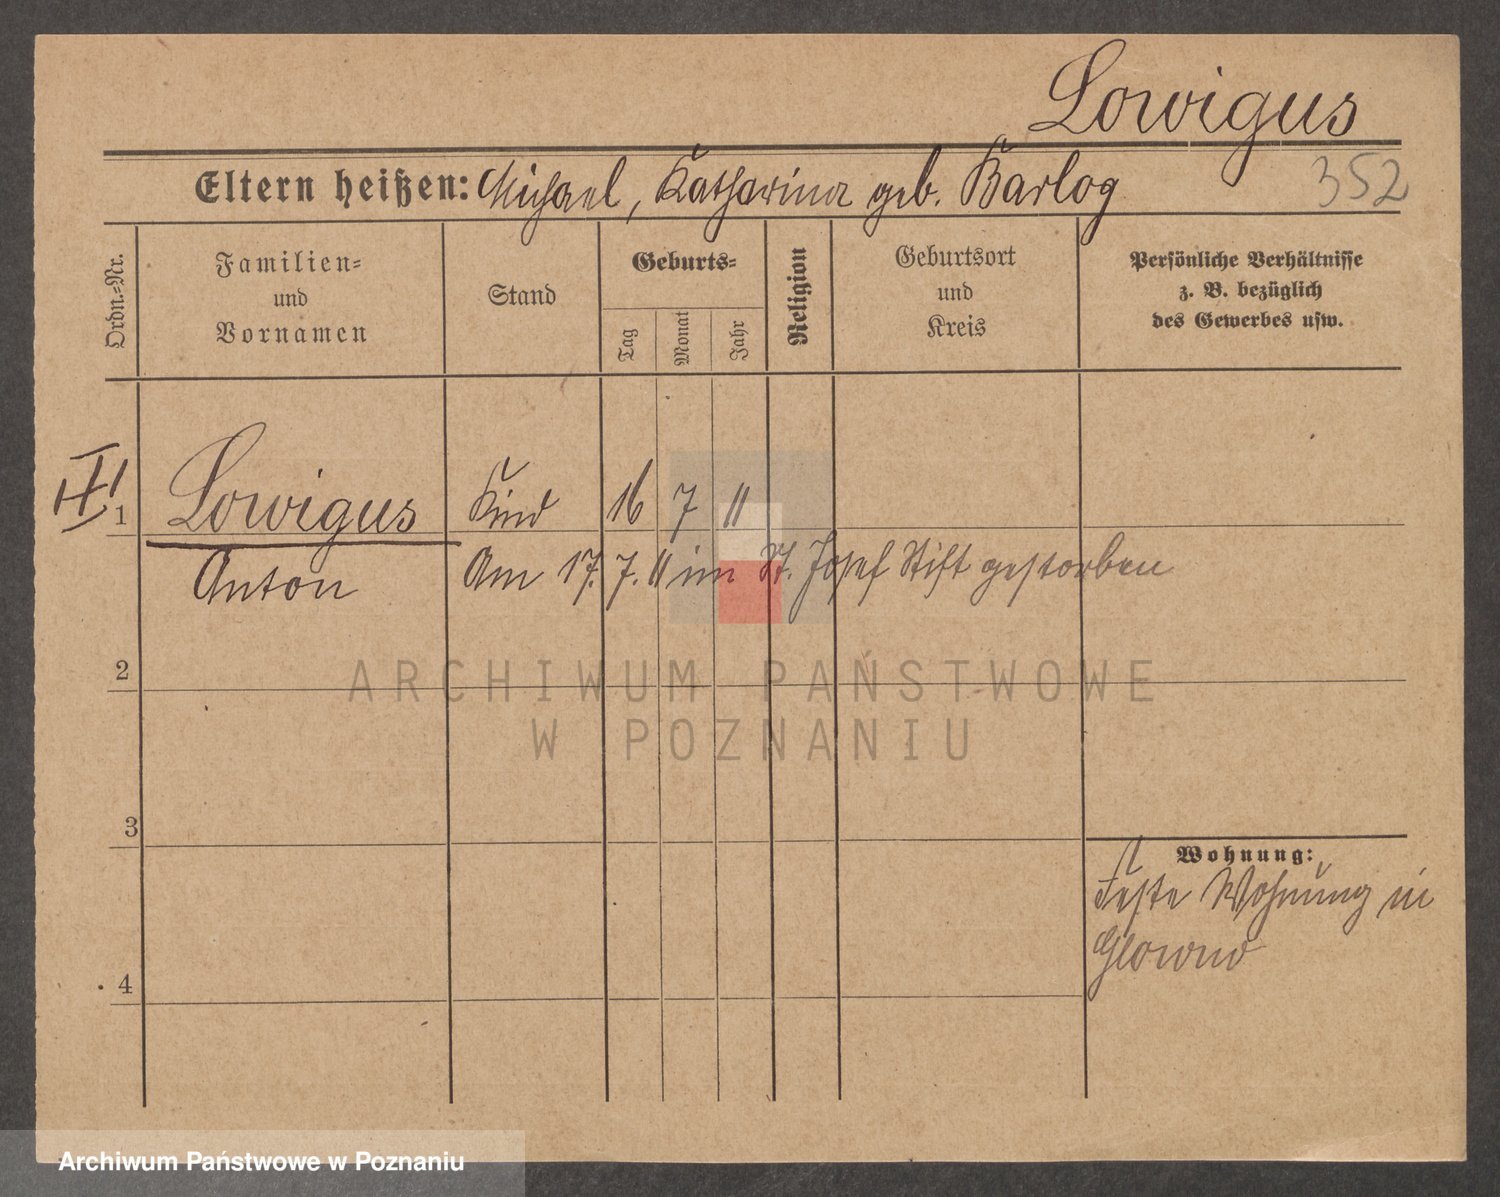 Lowigus
Eltern heißen: Michael, Katharina geb. Barlog
352
Ordn.=Nr.
Familien=
und
Vornamen
Stand
Geburts=
Tag
Monat
Jahr
Religion
Geburtsort
und
Kreis
Persönliche Verhältnisse
z. B. bezüglich
des Gewerbes usw.
1 Lowigus Kind 16 7 11
Anton Am 17. 7. 11 im St. Josef Stift gestorben
2
ARCHIWUM PAŃSTWOWE
W POZNANIU
3
Wohnung:
Feste Wohnung in
Glowno
4
Archiwum Państwowe w Poznaniu